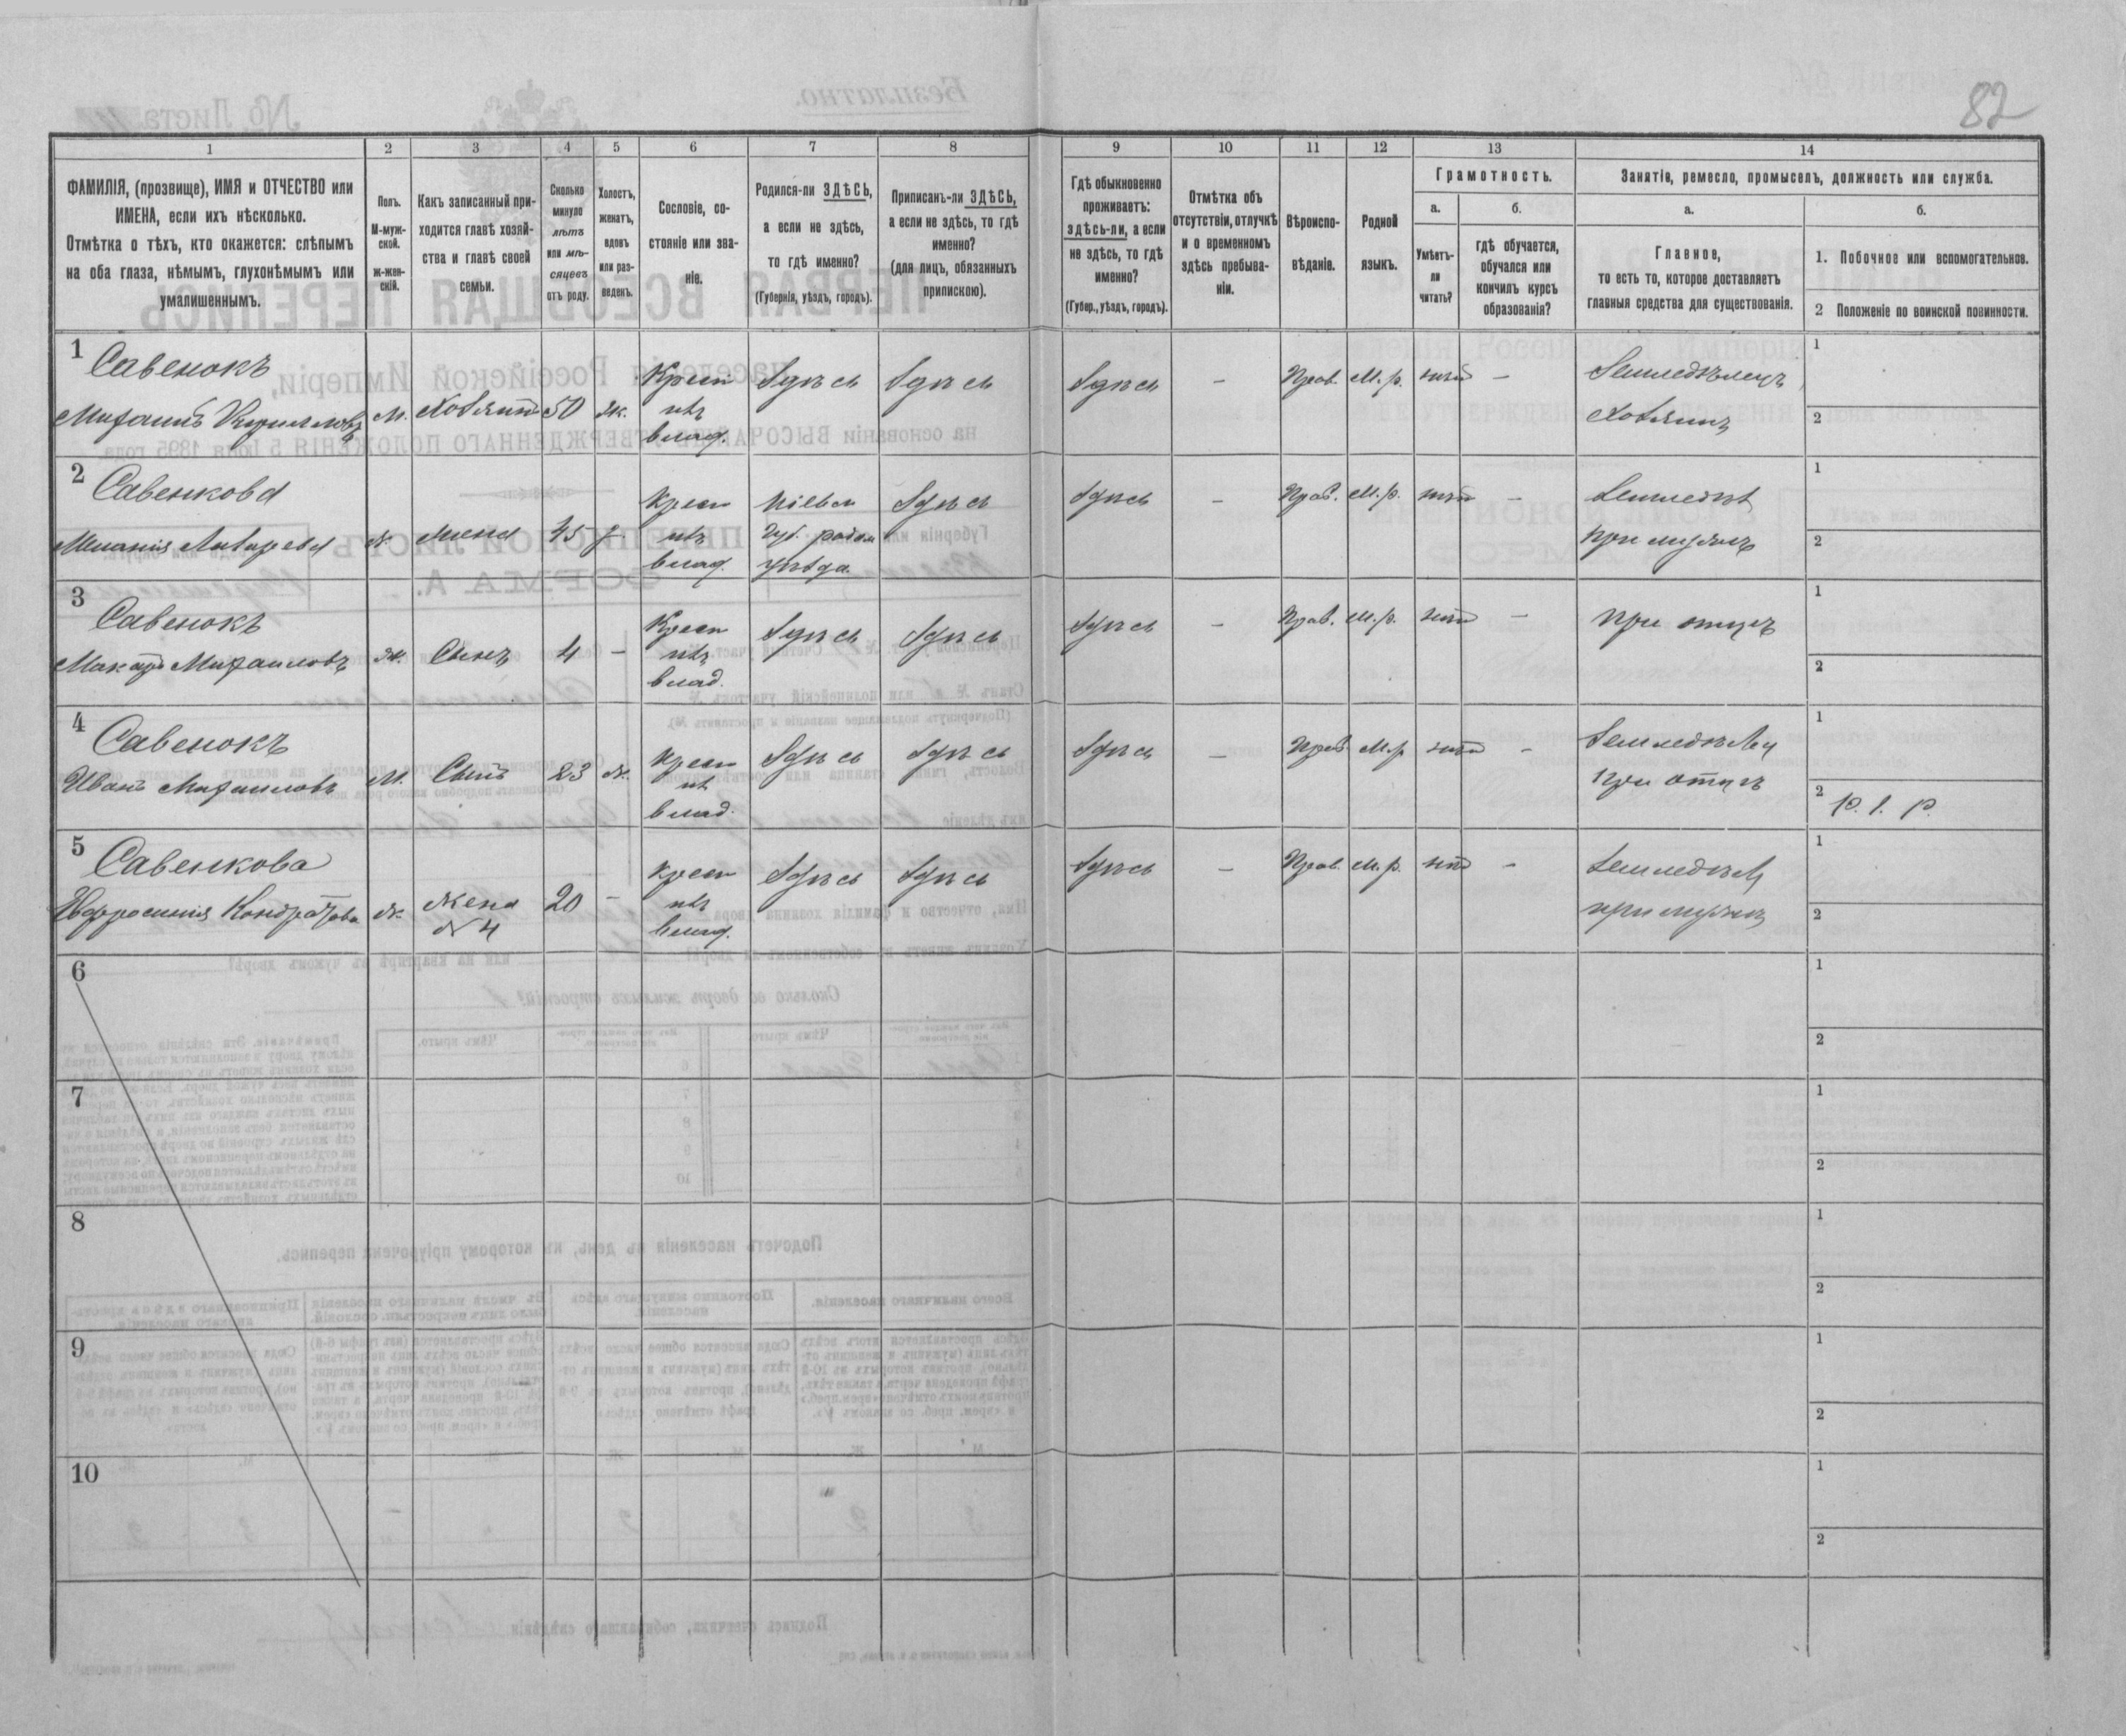 82
1 2 3 4 5 6 7 8 9 10 11 12 13 14
ФАМИЛІЯ, (прозвище), ИМЯ и ОТЧЕСТВО или
ИМЕНА, если ихъ нѣсколько.
Отмѣтка о тѣхъ, кто окажется: слѣпымъ
на оба глаза, нѣмымъ, глухонѣмымъ или
умалишеннымъ.
Полъ.
М-муж-
ской.
ж-жен-
скій.
Какъ записанный при-
ходится главѣ хозяй-
ства и главѣ своей
семьи.
Сколько
минуло
лѣтъ
или мѣ-
сяцевъ
отъ роду.
Холостъ,
женатъ,
вдовъ
или раз-
веденъ.
Сословіе, со-
стояніе или зва-
ніе.
Родился-ли ЗДѢСЬ,
а если не здѣсь,
то гдѣ именно?
(Губернія, уѣздъ, городъ).
Приписанъ-ли ЗДѢСЬ,
а если не здѣсь, то гдѣ
именно?
(для лицъ, обязанныхъ
припискою).
Гдѣ обыкновенно
проживаетъ:
здѣсь-ли, а если
не здѣсь, то гдѣ
именно?
(Губер., уѣздъ, городъ).
Отмѣтка объ
отсутствіи, отлучкѣ
и о временномъ
здѣсь пребыва-
ніи.
Вѣроиспо-
вѣданіе.
Родной
языкъ.
Грамотность.
а.
Умѣетъ-
ли
читать?
б.
гдѣ обучается,
обучался или
кончилъ курсъ
образованія?
Занятіе, ремесло, промыселъ, должность или служба.
а.
Главное,
то есть то, которое доставляетъ
главныя средства для существованія.
б.
1. Побочное или вспомогательное.
2 Положеніе по воинской повинности.
1
Савенокъ
Михаилъ Кирилловъ
М.
Хозяинъ
50
ж.
Крест
изъ
влад.
Здѣсь
Здѣсь
Здѣсь
–
Прав.
М. р.
нѣтъ
–
Земледѣлецъ
Хозяинъ
1
2
2
Савенкова
Меланія Лазарева
ж.
жена
45
з.
Крест
изъ
влад.
Кіевск
Губ. радом
уѣзда.
Здѣсь
Здѣсь
–
Прав.
М. р.
нѣтъ
–
Земледѣл
при мужѣ
1
2
3
Савенокъ
Макаръ Михаиловъ
м.
Сынъ
4
–
Крест
изъ
влад.
Здѣсь
Здѣсь
Здѣсь
–
Прав.
М. р.
нѣтъ
–
при отцѣ
1
2
4
Савенокъ
Иванъ Михаиловъ
М.
Сынъ
23
ж.
Крест
из
влад.
Здѣсь
Здѣсь
Здѣсь
–
Прав.
М. р.
нѣтъ
–
Земледѣлец
при отцѣ
1
2
р. 1. р.
5
Савенкова
Ефросинія Кондратова
ж.
жена
№ 4
20
–
Крест
изъ
влад.
Здѣсь
Здѣсь
Здѣсь
–
Прав.
М. р.
нѣтъ
–
Земледѣл
при мужѣ
1
2
6
1
2
7
1
2
8
1
2
9
1
2
10
1
2